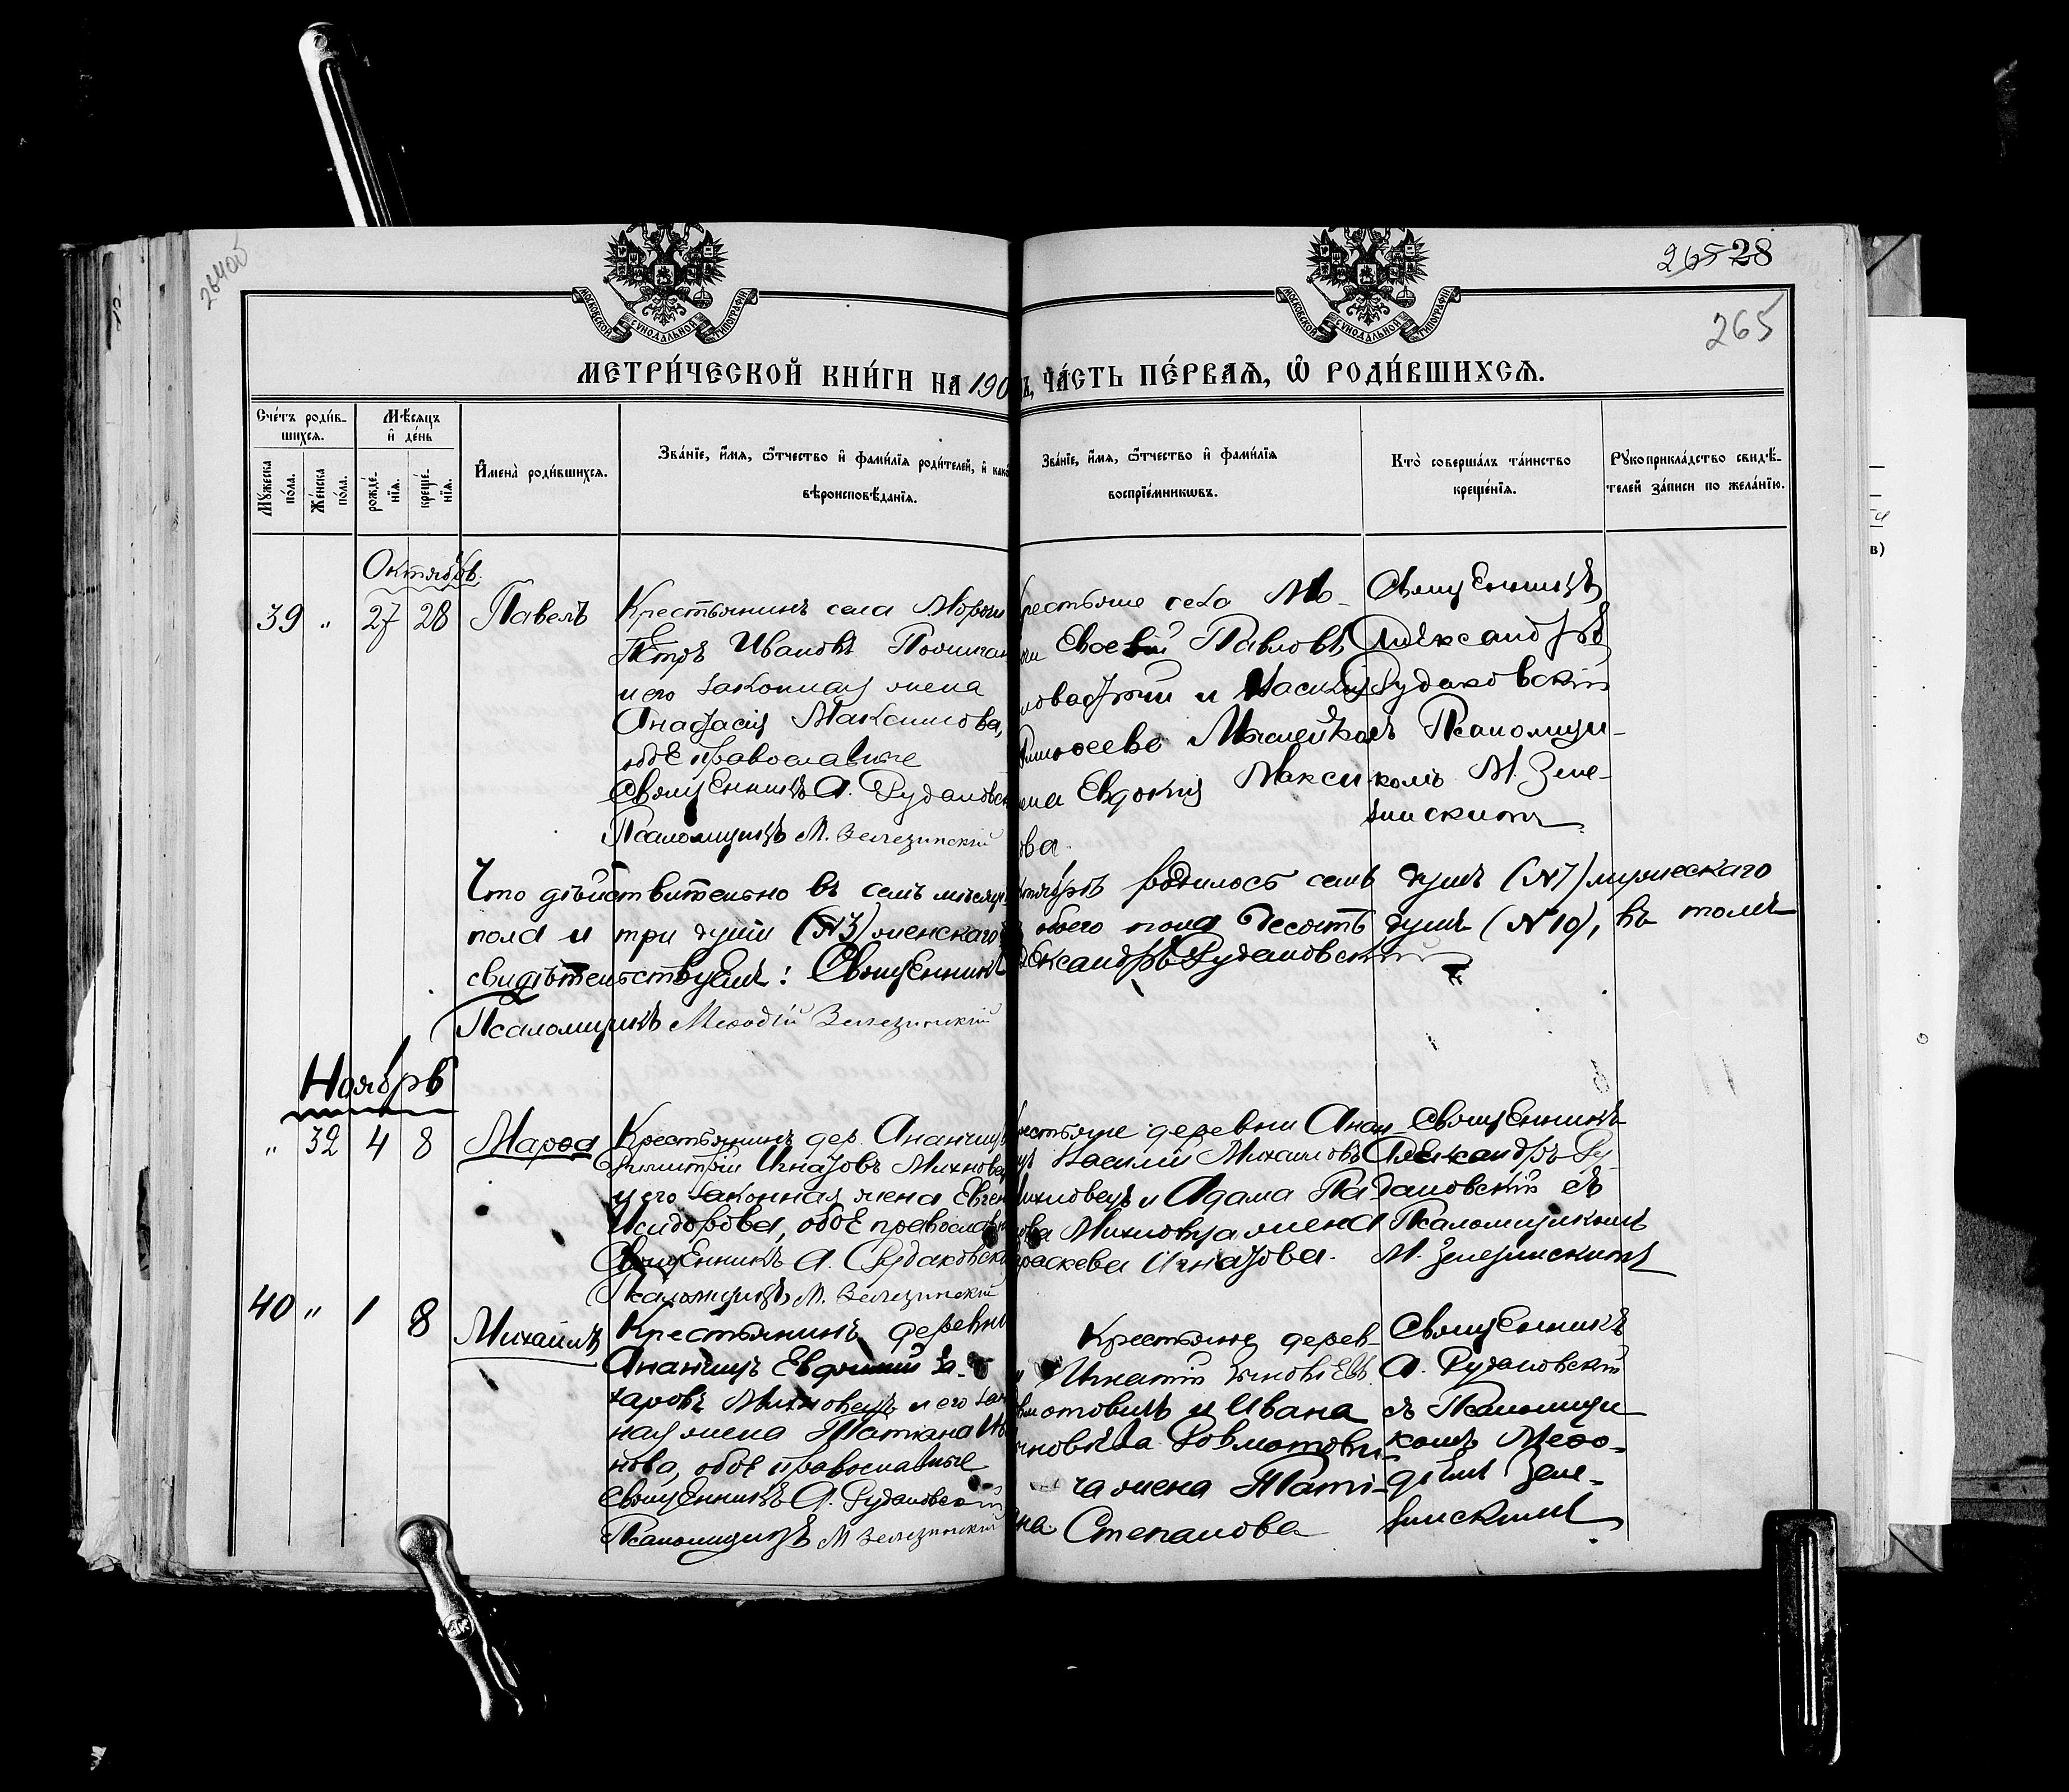 26400
265 28
265
МОСКОВСКОЙ СУНОДАЛЬНОЙ ТИПОГРАФІИ
МОСКОВСКОЙ СУНОДАЛЬНОЙ ТИПОГРАФІИ
МЕТРИ́ЧЕСКОЙ КНИ́ГИ НА 190 Ъ, ЧА́СТЬ ПЕ́РВАѦ, Ѡ РОДИ́ВШИХСѦ.
Сче́тъ роди́в-
шихся.
Мꙋ́жеска по́ла.
Же́нска по́ла.
Мѣ́сяцъ
и҆ де́нь
рожде́-
нїя.
креще́-
нїя.
И҆мена̀ роди́вшихся.
Зва́нїе, и҆́мя, ѻ҆́тчество и҆ фами́лїя роди́телей, и҆ како
вѣроисповѣ́данїя.
Зва́нїе, и҆́мя, ѻ҆́тчество и҆ фами́лїя
воспрїе́мникѡвъ.
Кто̀ соверша́лъ та́инство
креще́нїя.
Рꙋкоприкла́дство свидѣ́-
телей за́писи по жела́нїю.
Октябрь
39 " 27 28 Павелъ
Крестьянинъ села Мороч
Петръ Ивановъ
и его законная жена
Анастасія Максимова,
обѣ православные
Священникъ А. Рудаковск
Псаломщикъ М. Зелезинскій
рестьяне села Мо-
Павловъ
и Василія
жена Евдокія Макси
ова
Священникъ
Александръ
Рудаковскій
съ Псаломщи-
комъ М. Зеле-
зинскимъ
Что дѣйствительно въ семъ мѣсяцѣ ктябрѣ родилось семь душъ (№7) мужескаго
пола и три души (№3) женскаго обоего пола десять душъ (№10), въ томъ
свидѣтельствуемъ: Священникъ Александръ Рудаковскій
Псаломщикъ Меѳодій Зелезинскій
Ноябрь
" 32 4 8 Марѳа
Крестьянинъ дер. Ананчиц
Димитрій Игнатовъ Михнове
и его законная жена Евген
Исидорова, обѣ православн
Священникъ А. Рудаковскі
Псаломщикъ М. Зелезинскій
рестьяне деревни Анан
цъ Василій Михаиловъ
ихновецъ и Адама Па
ова Михновца жена
раскева Игнатова.
Священникъ
Александръ Ру-
даковскій съ
Псаломщикомъ
М. Зелезинскимъ
40 " 1 8 Михаилъ
Крестьянинъ деревни
Ананчицъ Евфимій За-
харовъ Михновецъ и его зак
ная жена Татіана Ив
нова, обѣ православные
Священникъ А. Рудаковскій
Псаломщикъ М Зелезинскій
Крестьяне дерев-
Игнатій
отовичъ и Ивана
Довмотови-
ча жена Таті-
на Степанова
Священникъ
А. Рудаковскій
съ Псаломщи
комъ Меѳо-
діемъ Зеле-
зинскимъ